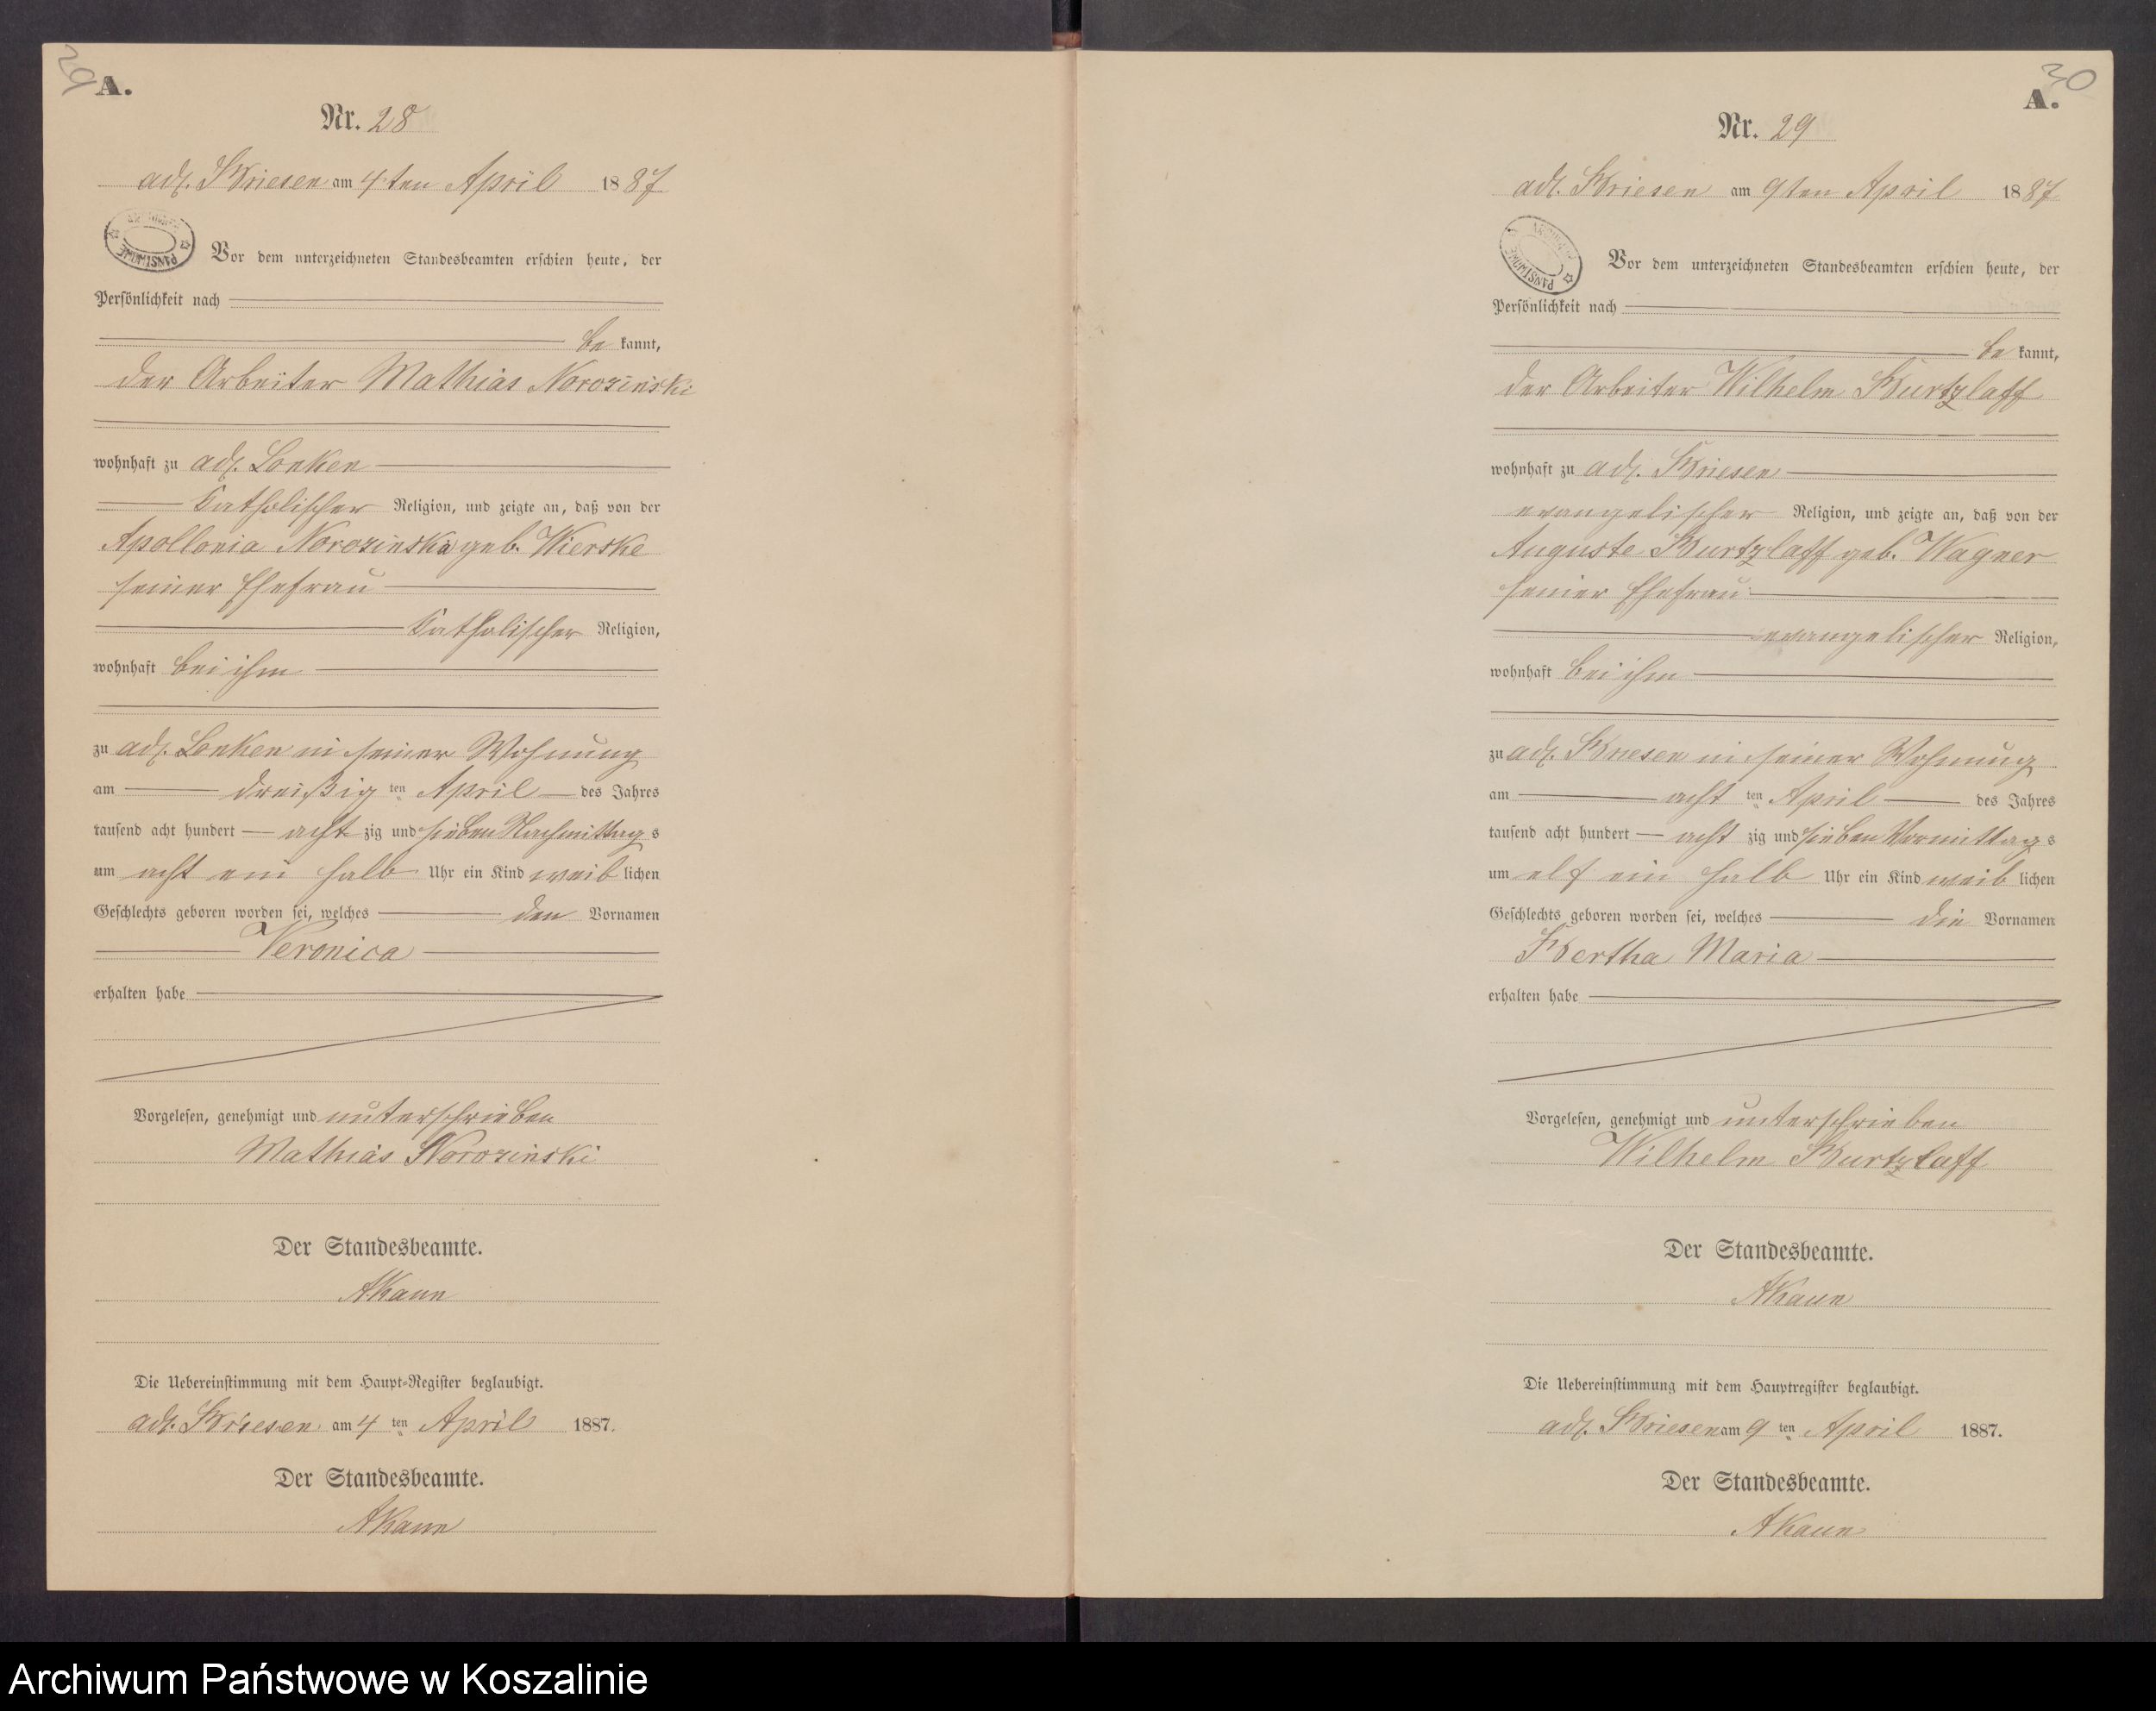 29
A.
Nr. 28
adl. Briesen am 4ten April 1887
Vor dem unterzeichneten Standesbeamten erschien heute, der
Persönlichkeit nach
be kannt,
der Arbeiter Mathias Norosinski
wohnhaft zu adl. Lonken
katholischer Religion, und zeigte an, daß von der
Apollonia Norosinska geb. Wierske
seiner Ehefrau
katholischer Religion,
wohnhaft bei ihm
zu adl. Lonken in seiner Wohnung
am dreißig ten April des Jahres
tausend acht hundert acht zig und sieben Nachmittag s
um acht ein halb Uhr ein Kind weib lichen
Geschlechts geboren worden sei, welches den Vornamen
Veronica
erhalten habe
Vorgelesen, genehmigt und unterschrieben
Mathias Norosinski
Der Standesbeamte.
AKaun
Die Uebereinstimmung mit dem Haupt-Register beglaubigt.
adl. Briesen am 4 ten April 1887.
Der Standesbeamte.
AKaun
30
A.
Nr. 29
adl. Briesen am 9ten April 1887
Vor dem unterzeichneten Standesbeamten erschien heute, der
Persönlichkeit nach
be kannt,
der Arbeiter Wilhelm Burtzlaff
wohnhaft zu adl. Briesen
evangelischer Religion, und zeigte an, daß von der
Auguste Burtzlaff geb. Wagner
seiner Ehefrau
evangelischer Religion,
wohnhaft bei ihm
zu adl. Briesen in seiner Wohnung
am acht ten April des Jahres
tausend acht hundert acht zig und sieben Vormittag s
um elf ein halb Uhr ein Kind weib lichen
Geschlechts geboren worden sei, welches die Vornamen
Bertha Maria
erhalten habe
Vorgelesen, genehmigt und unterschrieben
Wilhelm Burtzlaff
Der Standesbeamte.
AKaun
Die Uebereinstimmung mit dem Hauptregister beglaubigt.
adl. Briesen am 9 ten April 1887.
Der Standesbeamte.
AKaun
Archiwum Państwowe w Koszalinie